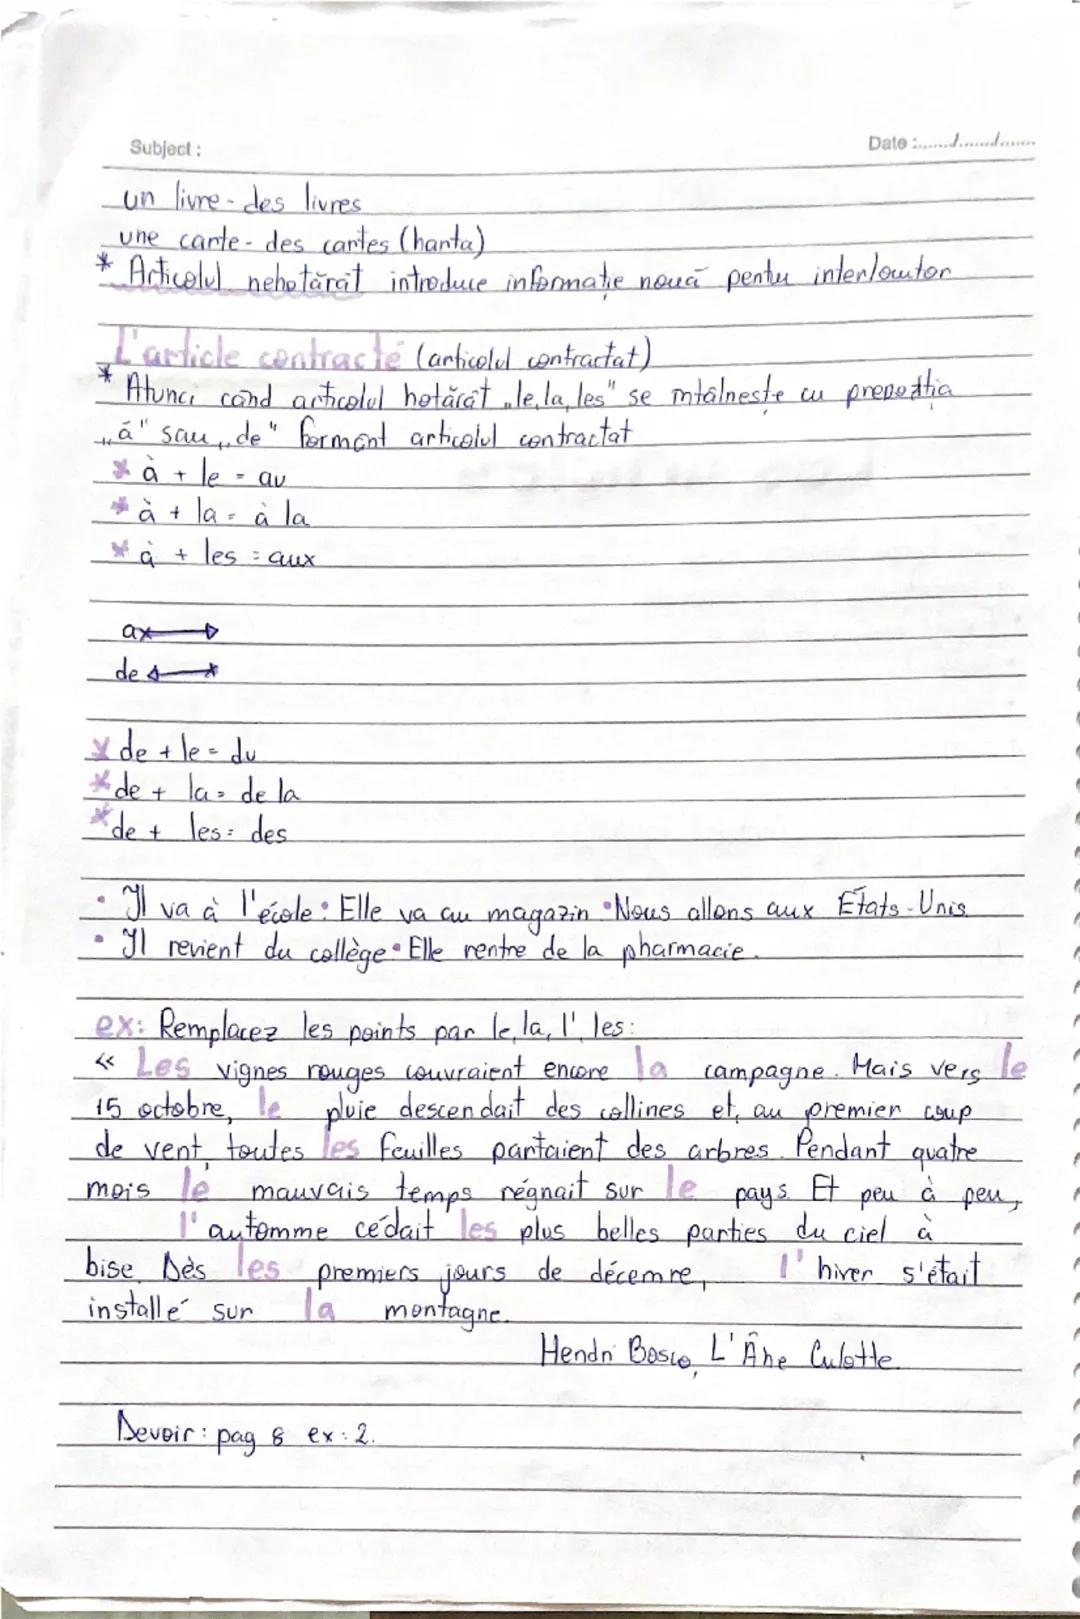 Subject :
Date :......./......./.......
un livre - des livres
une carte - des cartes (harta)
* Articolul nehotărât introduce informație nouă pentu interlocutor
L'article contracté (articolul contractat)
* Atunci când articolul hotărât „le, la, les" se întâlnește cu prepoziția
„à" sau „de" formânt articolul contractat
* à + le = au
* à + la = à la
* à + les = aux
a
de
* de + le = du
* de + la = de la
* de + les = des
• Il va à l'école • Elle va au magazin • Nous allons aux États-Unis
• Il revient du collège • Elle rentre de la pharmacie.
ex: Remplacez les points par le, la, l', les:
« Les vignes rouges couvraient encore la campagne. Mais vers le
15 octobre, le pluie descendait des collines et, au premier coup
de vent, toutes les feuilles partaient des arbres. Pendant quatre
mois le mauvais temps régnait sur le pays. Et peu à peu,
l'automme cédait les plus belles parties du ciel à
bise. Dès les premiers jours de décemre, l'hiver s'était
installé sur la montagne.
Hendri Bosco, L'Âne Culotte.
Devoir: pag 8 ex: 2.